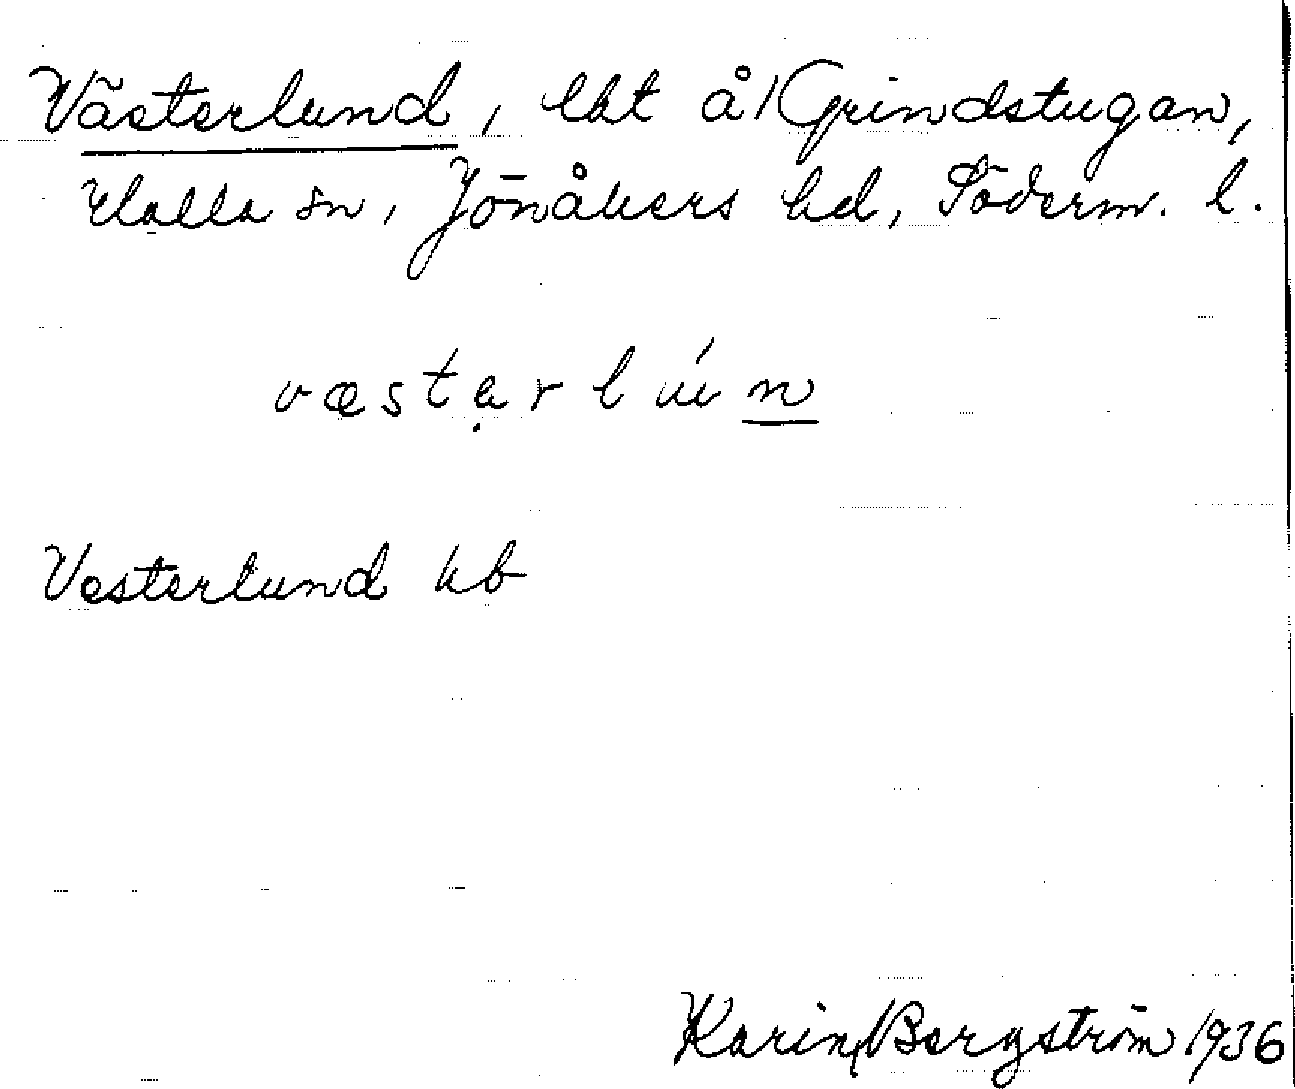 Västerlund, lht å Grindstugan,
Halla sn, Jönåkers hd, Söderm. l.
væstạrlún
Vesterlund kb
Karin Bergström 1936